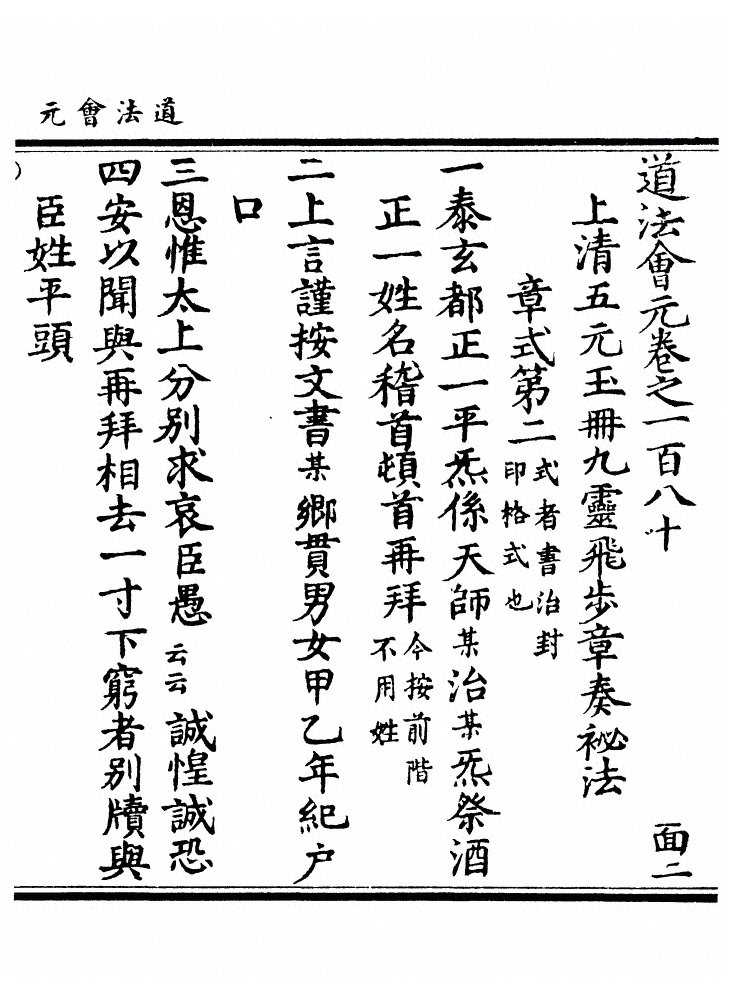 道法會元
道法會元卷之一百八十 面二
上清五元玉冊九靈飛步章奏祕法
章式第二式者書治封印格式也
一泰玄都正一平炁係天師某治某炁祭酒
正一姓名稽首頓首再拜今按前階不用姓
二上言謹按文書某鄉貫男女甲乙年紀户
口
三恩惟太上分别求哀臣愚云云誠惶誠恐
四安以聞與再拜相去一寸下窮者别牘與
臣姓平頭